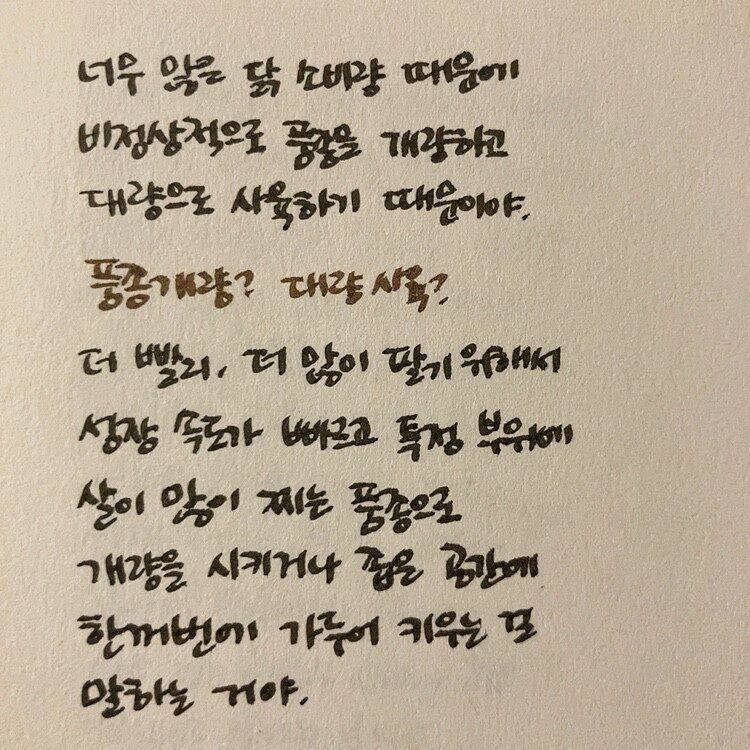 너무 많은 닭 소비량 때문에
비정상적으로 품종을 개량하고
대량으로 사육하기 때문이야.
품종개량? 대량 사육?
더 빨리, 더 많이 팔기 위해서
성장 속도가 빠르고 특정 부위에
살이 많이 찌는 품종으로
개량을 시키거나 좁은 공간에
한꺼번에 가두어 키우는 걸
말하는 거야.